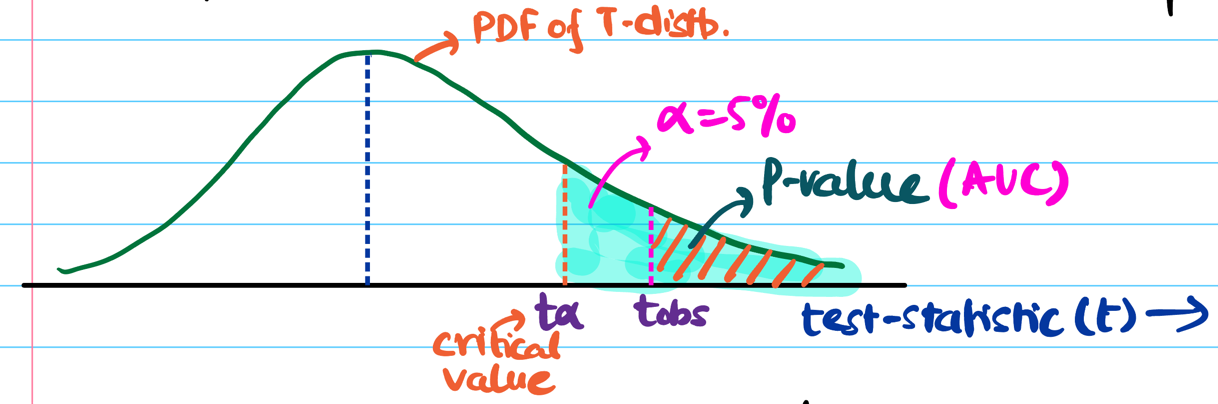 PDF of T-distb.
α=5%
P-value (AUC)
tα
tobs
test-statistic (t)
critical
value